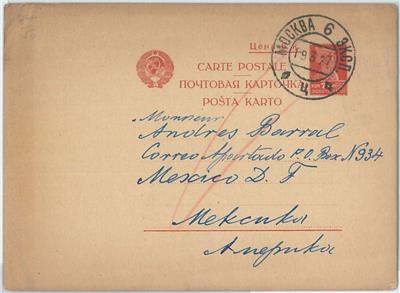 Цена
CARTE POSTALE
ПОЧТОВАЯ КАРТОЧКА
POŜTA KARTO
МОСКВА 6 ЭКСП
Ц
Monsieur
Andres Barral
Correo Apartado P.O. Box N 934
Mexico D. F
Мексика
Америка